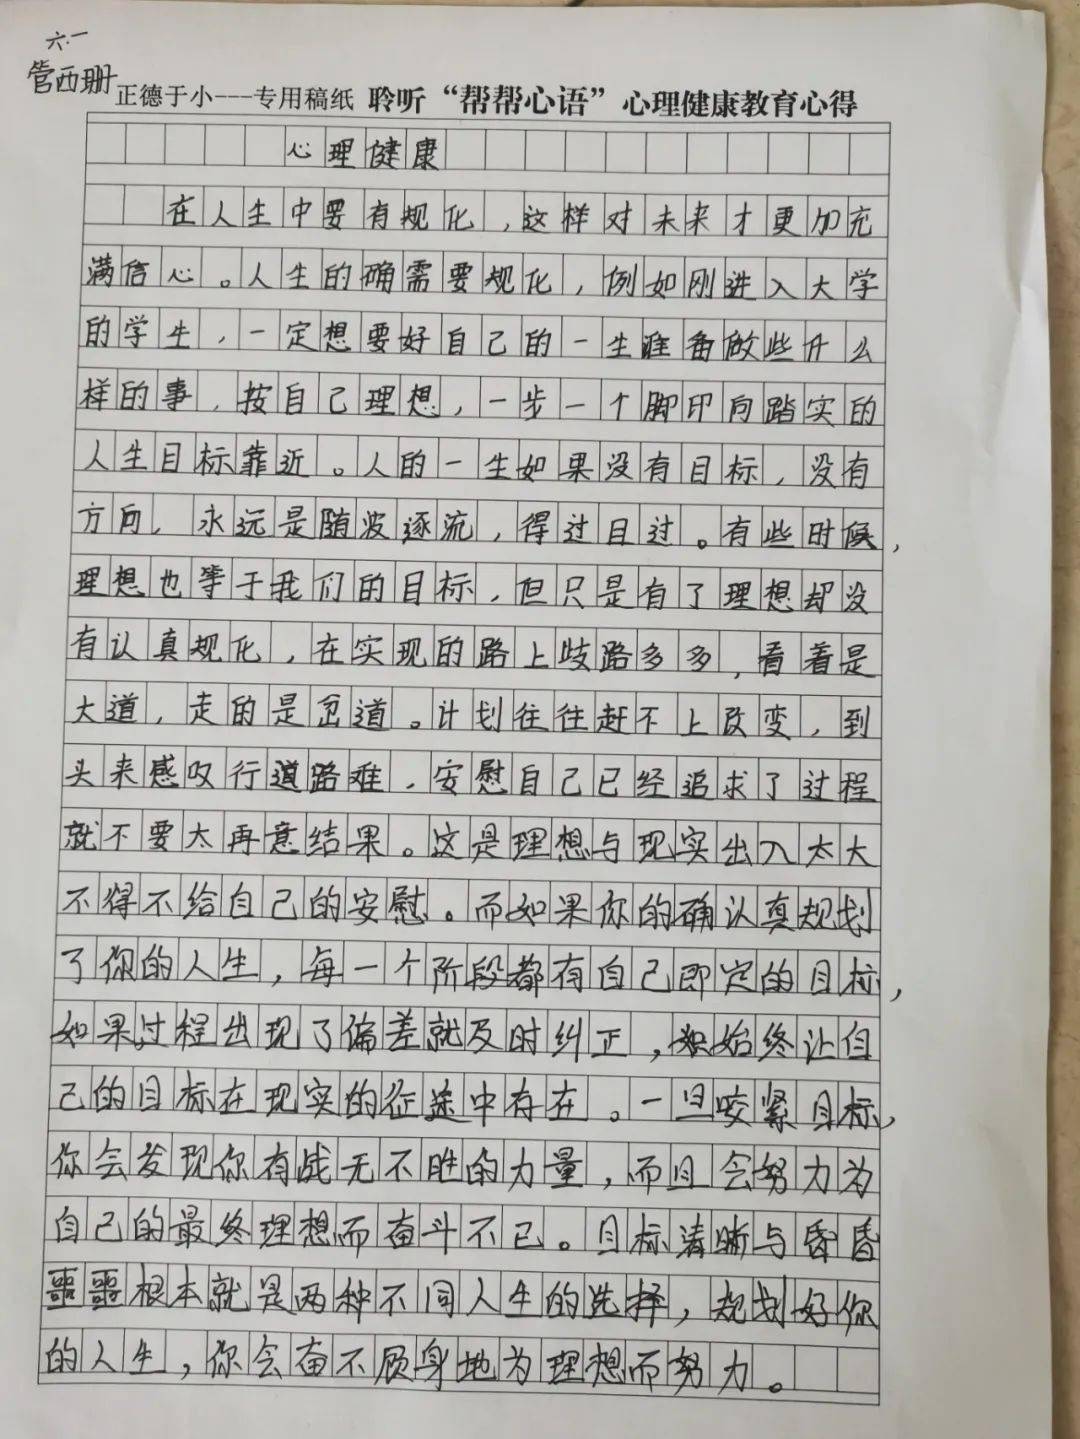 六.一
管西珊
正德于小---专用稿纸 聆听“帮帮心语”心理健康教育心得
心理健康
在人生中要有规化,这样对未来才更加充
满信心。人生的确需要规化,例如刚进入大学
的学生,一定想要好自己的一生准备做些什么
样的事,按自己理想,一步一个脚印向踏实的
人生目标靠近。人的一生如果没有目标,没有
方向,永远是随波逐流,得过且过。有些时候,
理想也等于我们的目标,但只是有了理想却没
有认真规化,在实现的路上歧路多多,看着是
大道,走的是岔道。计划往往赶不上改变,到
头来感叹行道路难,安慰自己已经追求了过程
就不要太再意结果。这是理想与现实出入太大
不得不给自己的安慰。而如果你的确认真规划
了你的人生,每一个阶段都有自己即定的目标,
如果过程出现了偏差就及时纠正,始终让自
己的目标在现实的征途中存在。一旦咬紧目标,
你会发现你有战无不胜的力量,而且会努力为
自己的最终理想而奋斗不已。目标清晰与昏昏
噩噩根本就是两种不同人生的选择,规划好你
的人生,你会奋不顾身地为理想而努力。